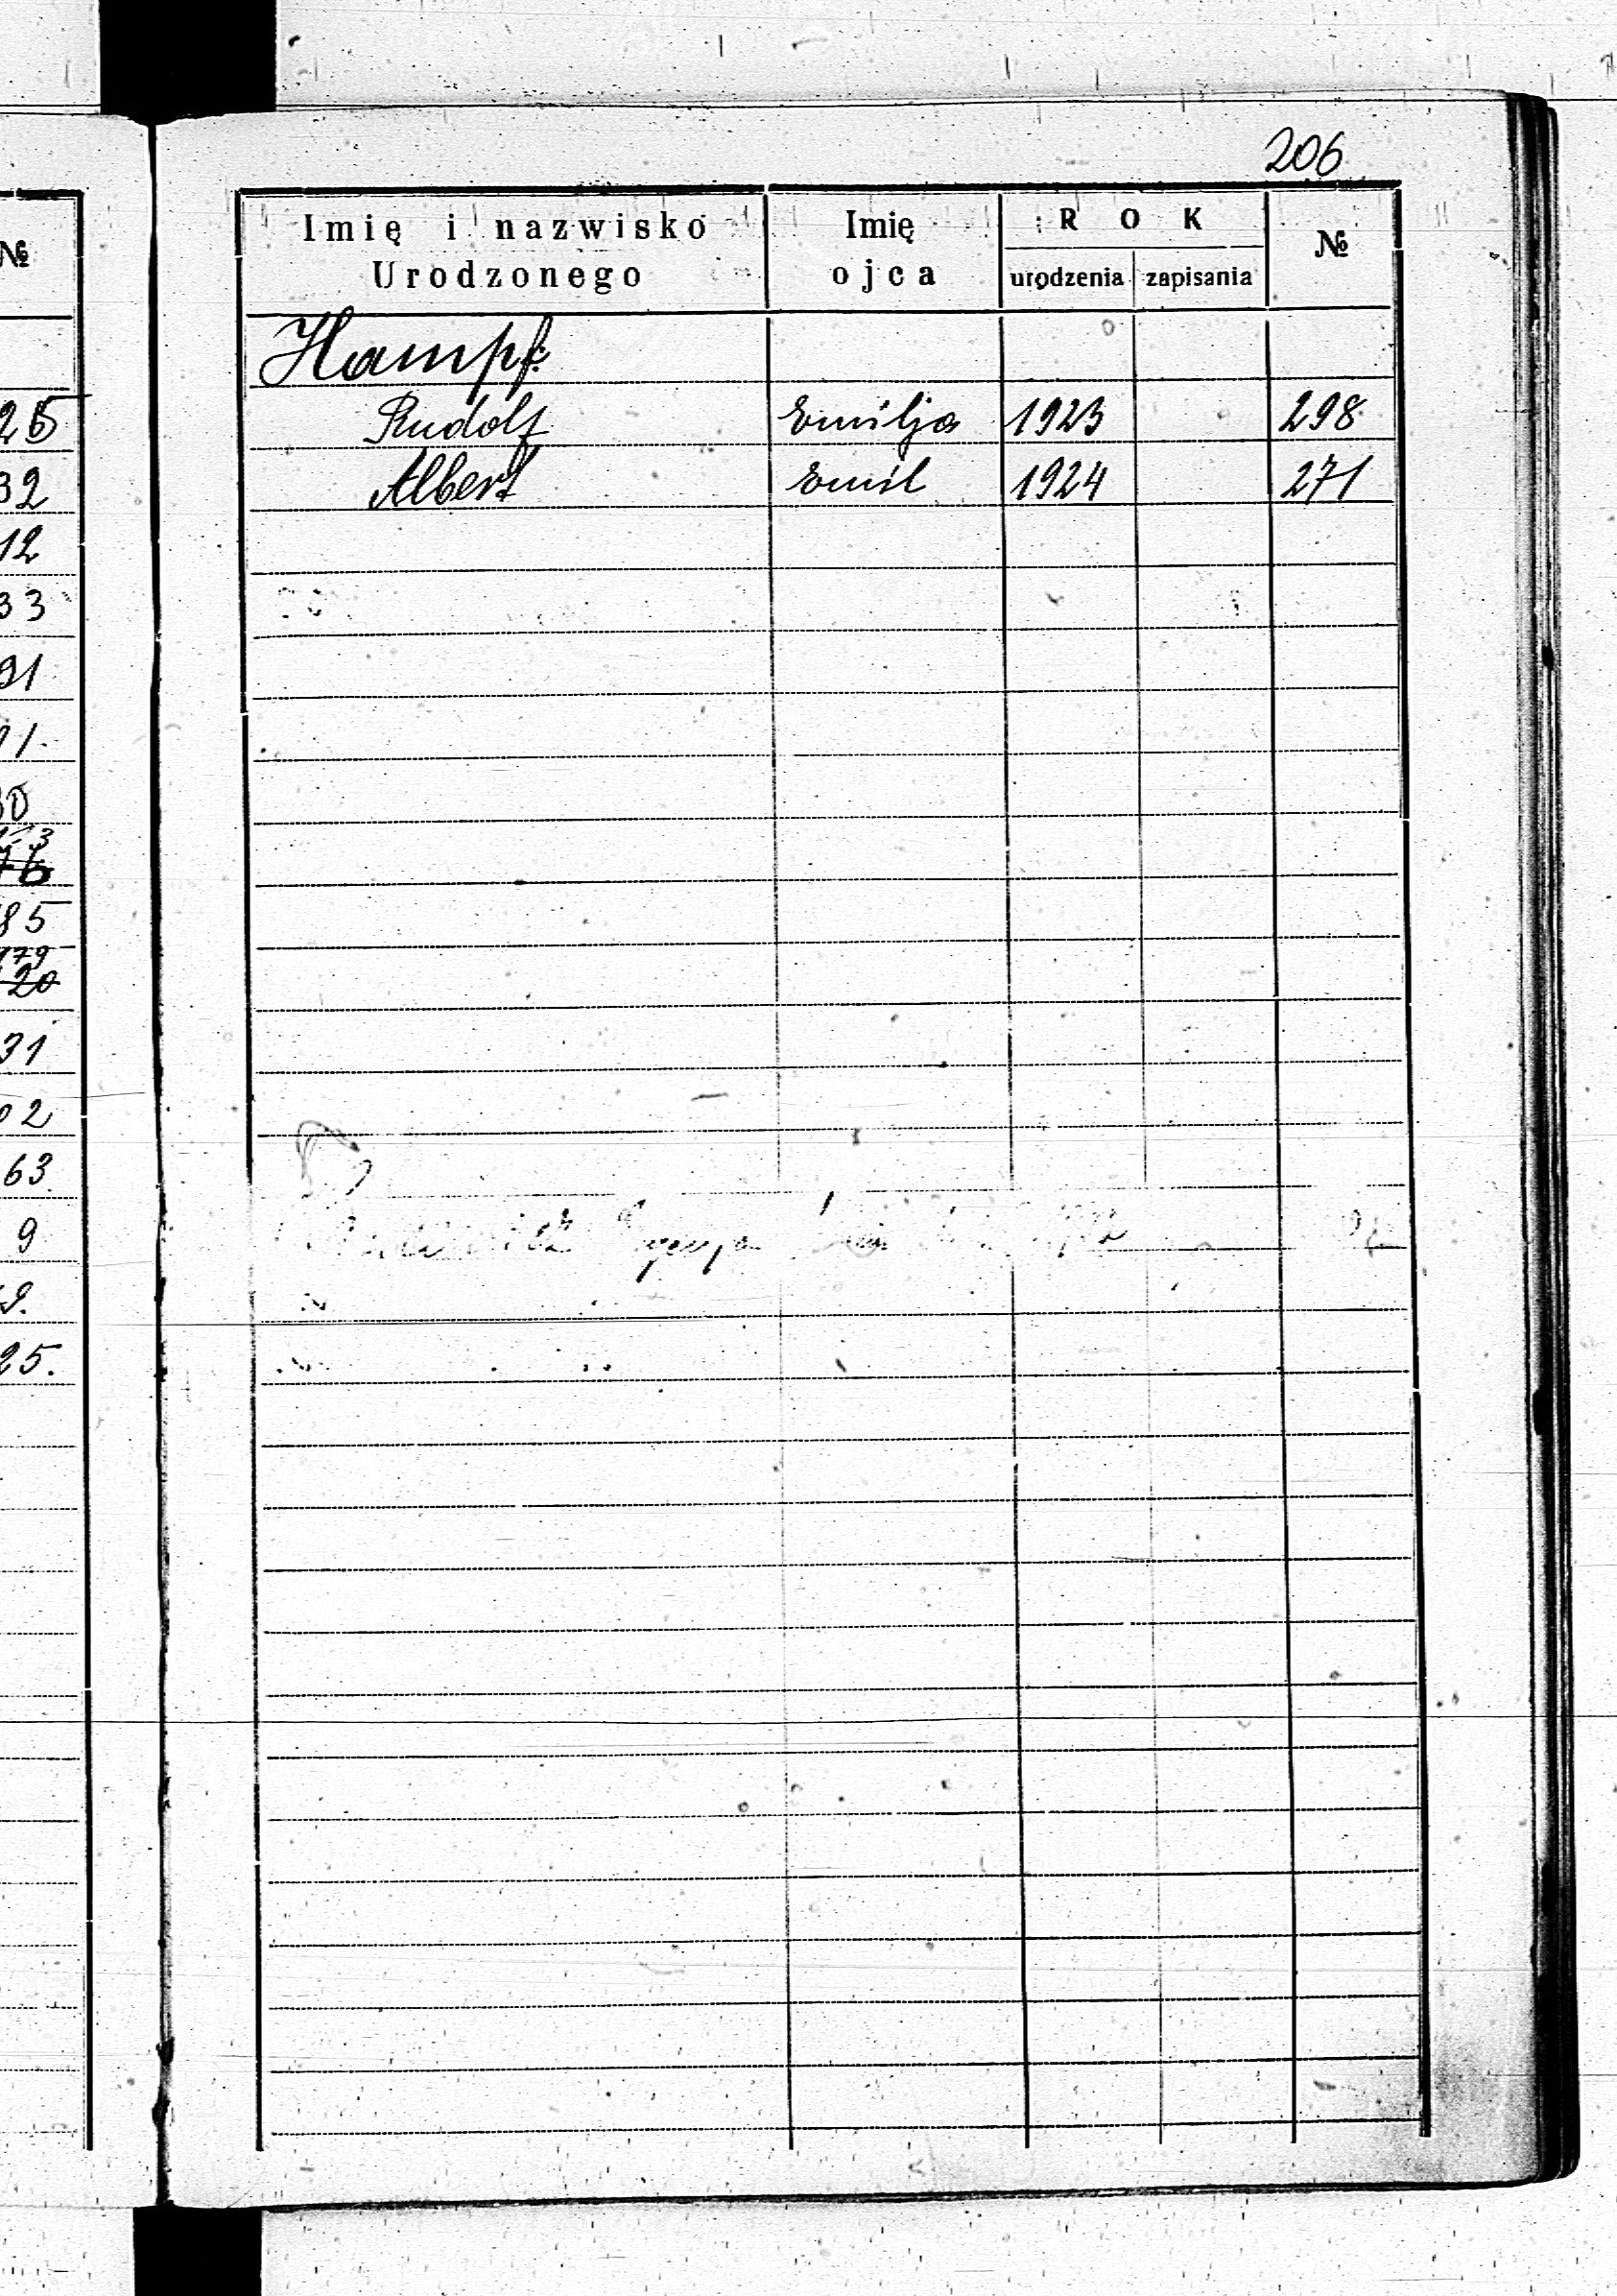 206
Imię i nazwisko Urodzonego Imię ojca ROK urodzenia zapisania №
Hampf:
Rudolf Emilja 1923 298
Albert Emil 1924 271
№
25
32
12
33
91
31
02
63
9
25.